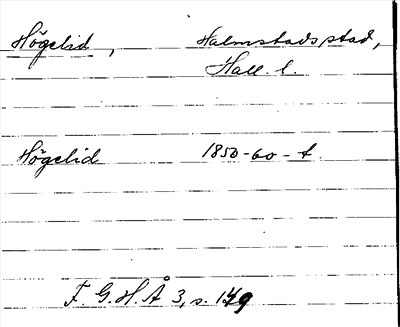 Högelid, Halmstads stad,
Hall. l.
Högelid 1850-60-t.
F. G. H. Å 3, s. 149